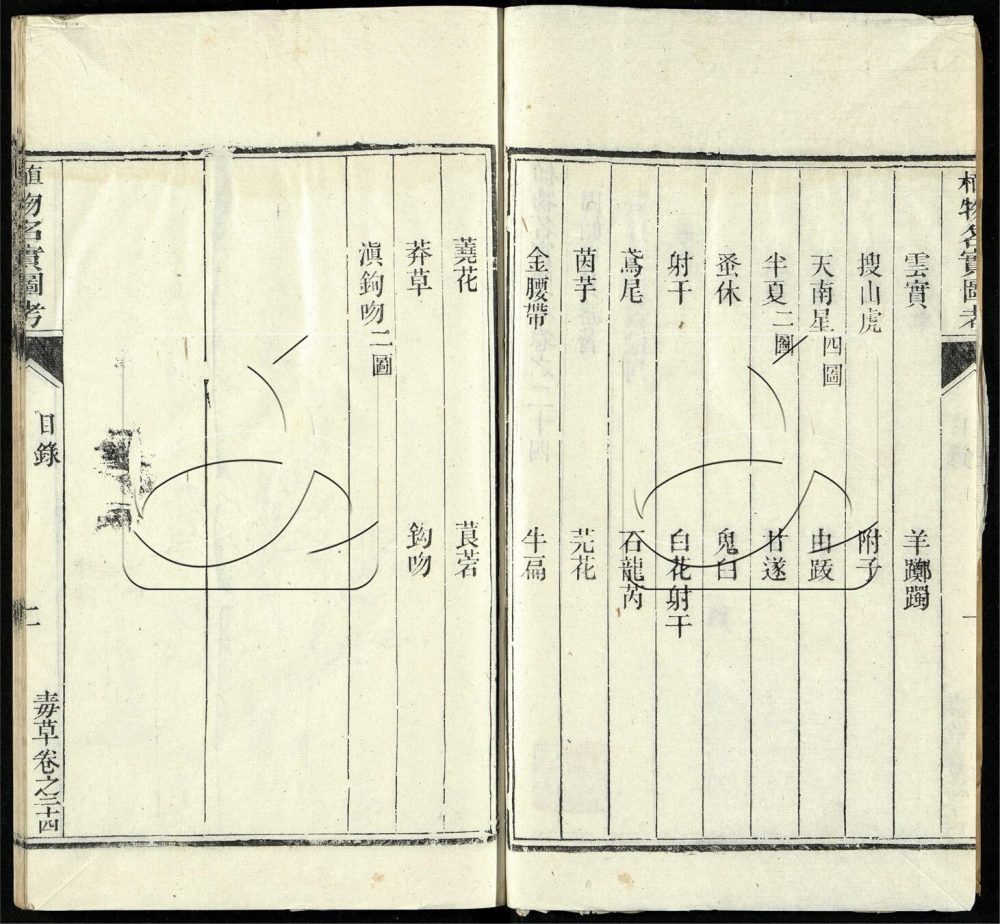 植物名實圖考
雲實 羊躑躅
搜山虎 附子
天南星四圖 由跋
半夏二圖 甘遂
蚤休 鬼臼
射干 白花射干
鳶尾 石龍芮
茵芋 芫花
金腰帶 牛扁
蕘花 莨菪
莽草 鉤吻
滇鉤吻二圖
植物名實圖考 目錄 二 毒草卷之二十四